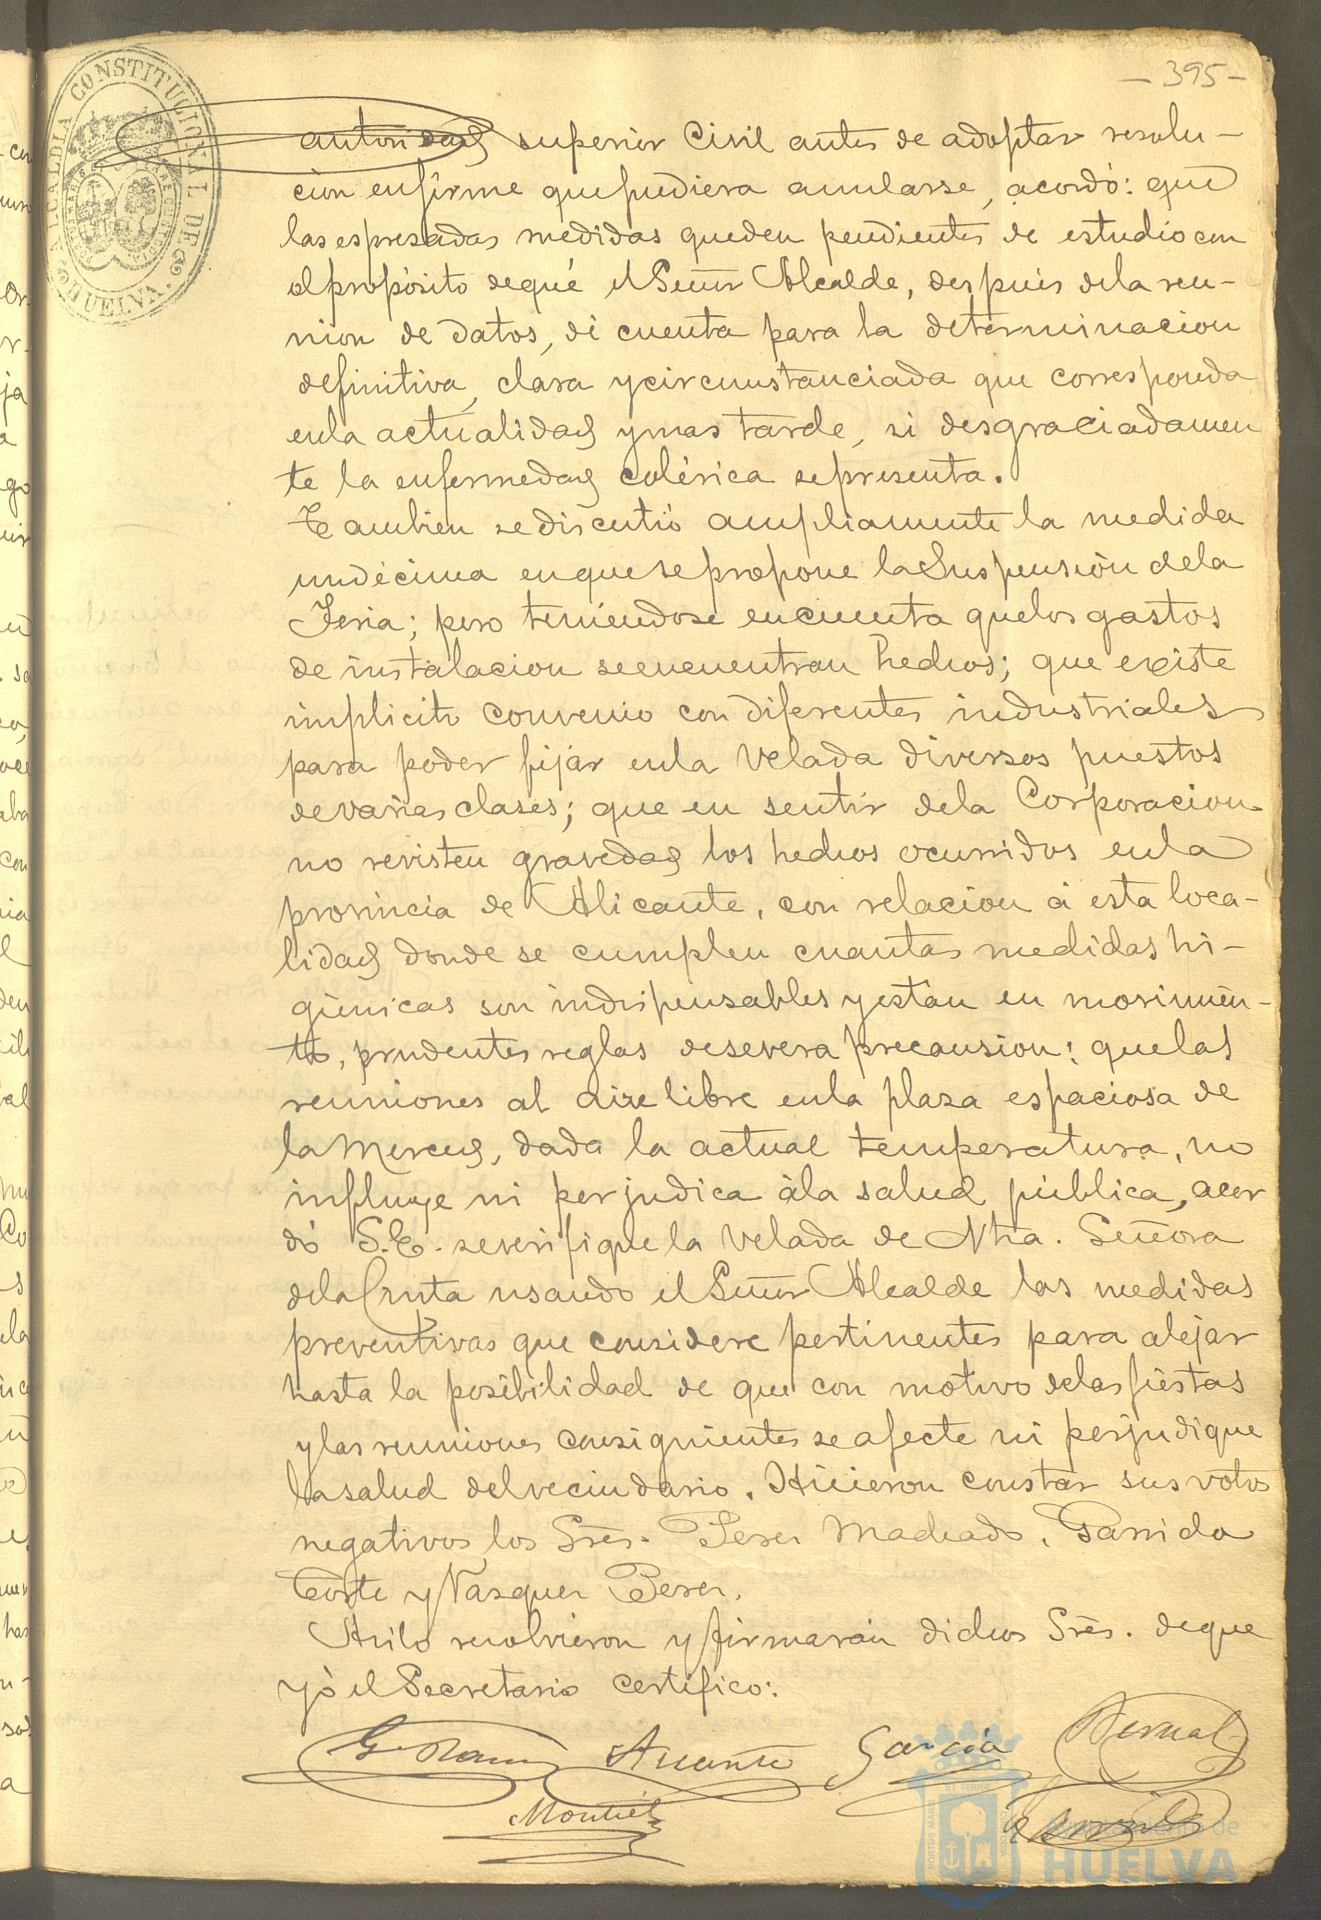 - 395 -
ALCALDIA CONSTITUCIONAL DE HUELVA
autoridad superior Civil antes de adoptar resolu-
ción en firme que pudiera anularse, acordó: que
las espresadas medidas queden pendientes de estudio con
el propósito de qué el Señor Alcalde, despues de la reu-
nion de datos, dé cuenta para la determinacion
definitiva, clara y circunstanciada que corresponda
en la actualidad y mas tarde, si desgraciadamen
te la enfermedad colérica se presenta.
Tambien se discutió ampliamente la medida
undécima en que se propone la Suspensión de la
Feria; pero teniéndose en cuenta que los gastos
de instalacion se encuentran hechos; que existe
implicito convenio con diferentes industriales
para poder fijar en la Velada diversos puestos
de varias clases; que en sentir de la Corporacion
no revisten gravedad los hechos ocurridos en la
provincia de Alicante, con relacion á esta loca-
lidad donde se cumplen cuantas medidas hi-
giénicas son indispensables y estan en movimien-
to, prudentes reglas de severa precausion: que las
reuniones al aire libre en la plaza espaciosa de
la Merced, dada la actual temperatura, no
influye ni perjudica á la salud pública, acor
dó S.E. se verifique la Velada de Ntra. Señora
de la Cinta usando el Señor Alcalde las medidas
preventivas que considere pertinentes para alejar
hasta la posibilidad de que con motivo de las fiestas
y las reuniones consiguientes se afecte ni perjudique
la salud del vecindario. Hicieron constar sus votos
negativos los Sres. Perez Machado, Garrido
Corte y Vazquez Perez.
Asi lo resolvieron y firmarán dichos Sres. de que
yó el Secretario certifico:
García Bernal
Montiel
Ayuntamiento de
HUELVA